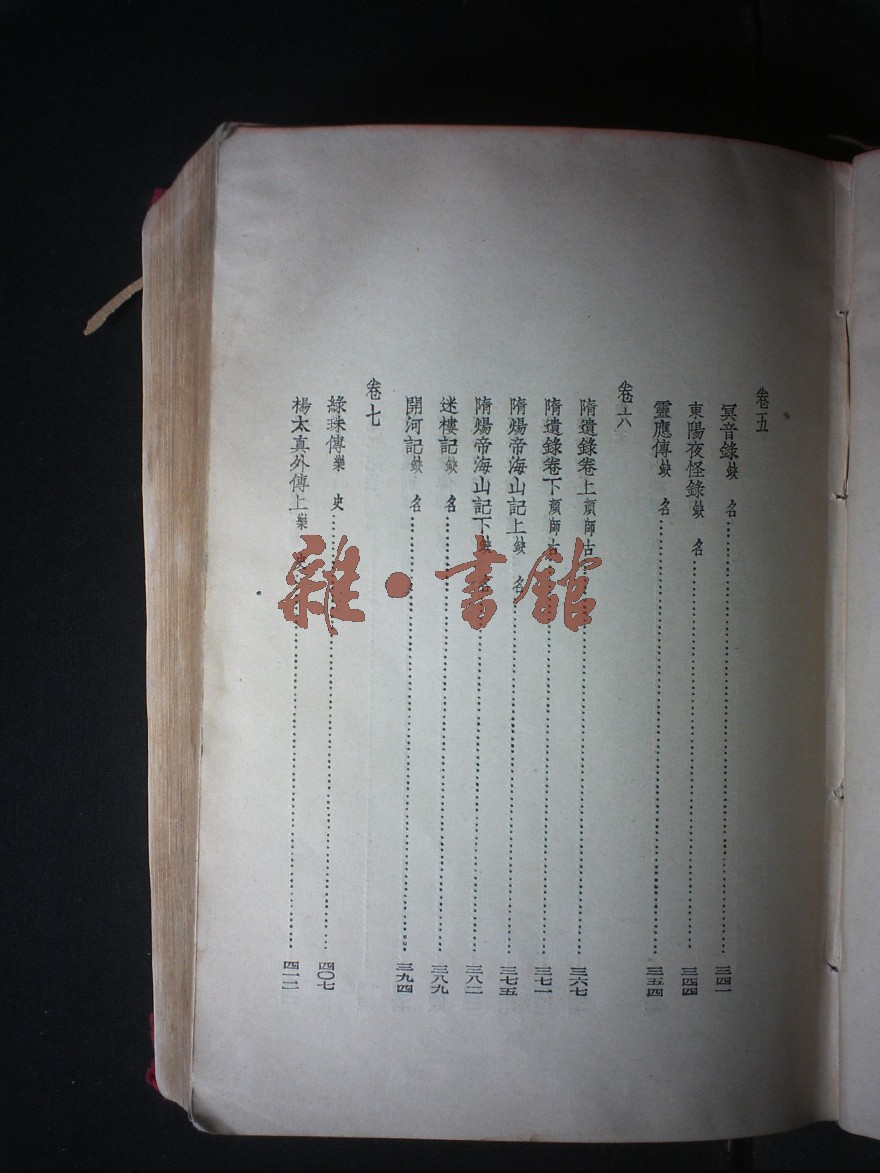 卷五
冥音錄 缺名 三四一
東陽夜怪錄 缺名 三四四
靈應傳 缺名 三五四
卷六
隋遺錄卷上 顏師古 三六七
隋遺錄卷下 顏師古 三七一
隋煬帝海山記上 缺名 三七五
隋煬帝海山記下 缺名 三八二
迷樓記 缺名 三八九
開河記 缺名 三九四
卷七
綠珠傳 樂史 四〇七
楊太真外傳上 樂史 四一二
雜·書館